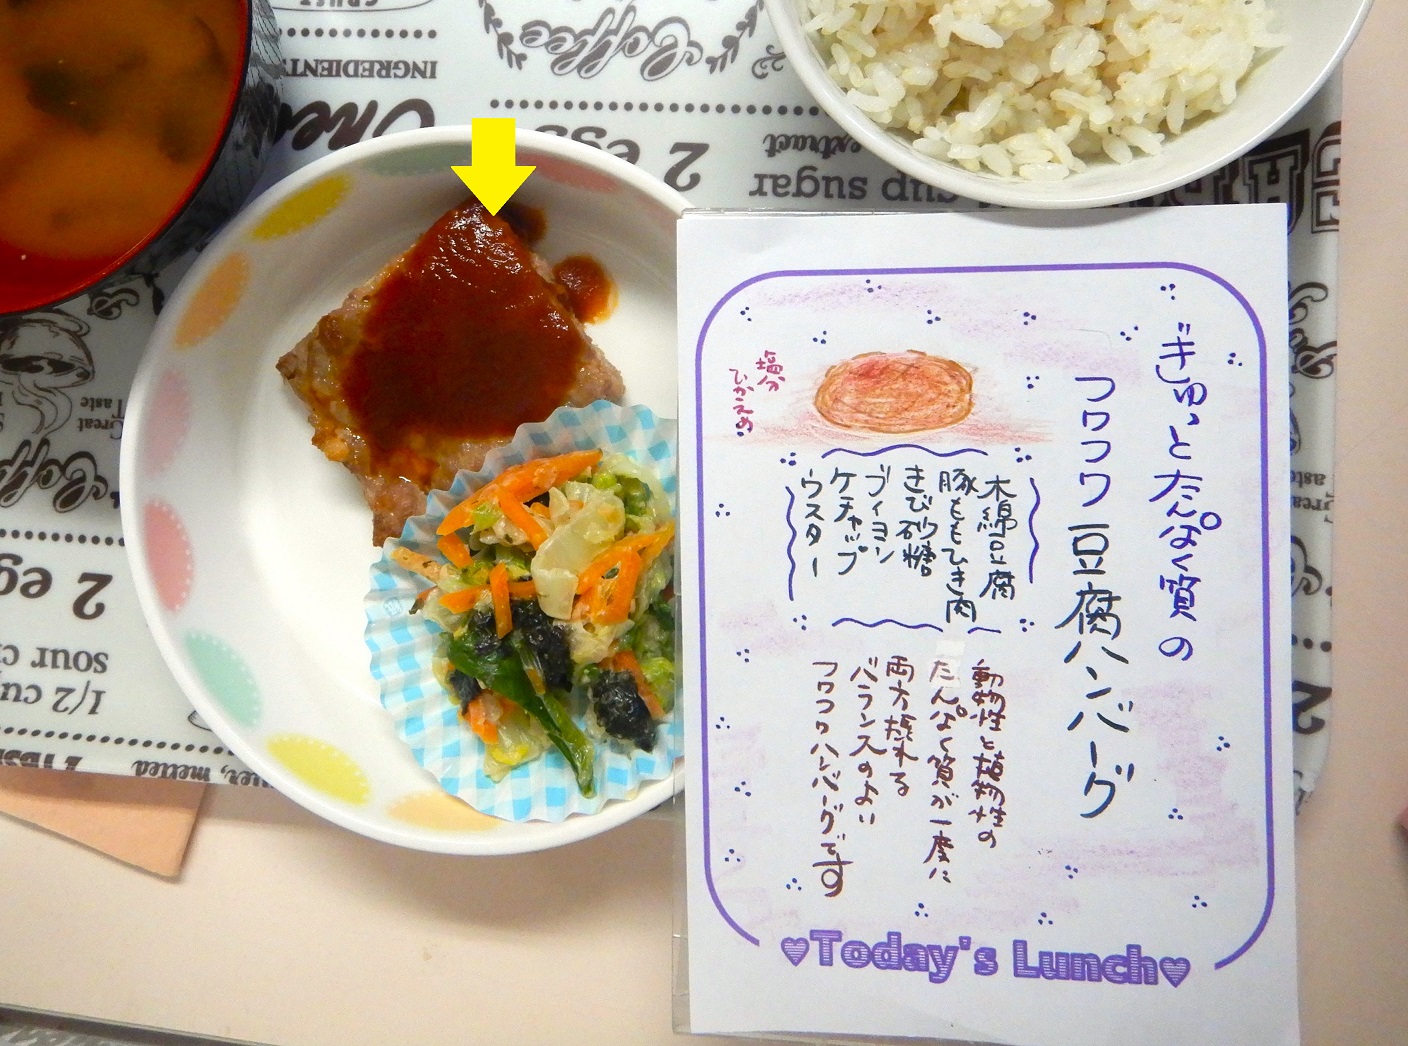 ぎゅっとたんぱく質の
フワフワ豆腐ハンバーグ
塩分
ひかえめ
木綿豆腐
豚ももひき肉
きび砂糖
ブイヨン
ケチャップ
ウスター
動物性と植物性の
たんぱく質が一度に
両方摂れる
バランスのよい
フワフワハンバーグです
Today's Lunch
INGREDIENTS
Coffee
2 eggs
extract
cup sugar
Great
Taste
2 egg
sour c
1/2 cup
melted